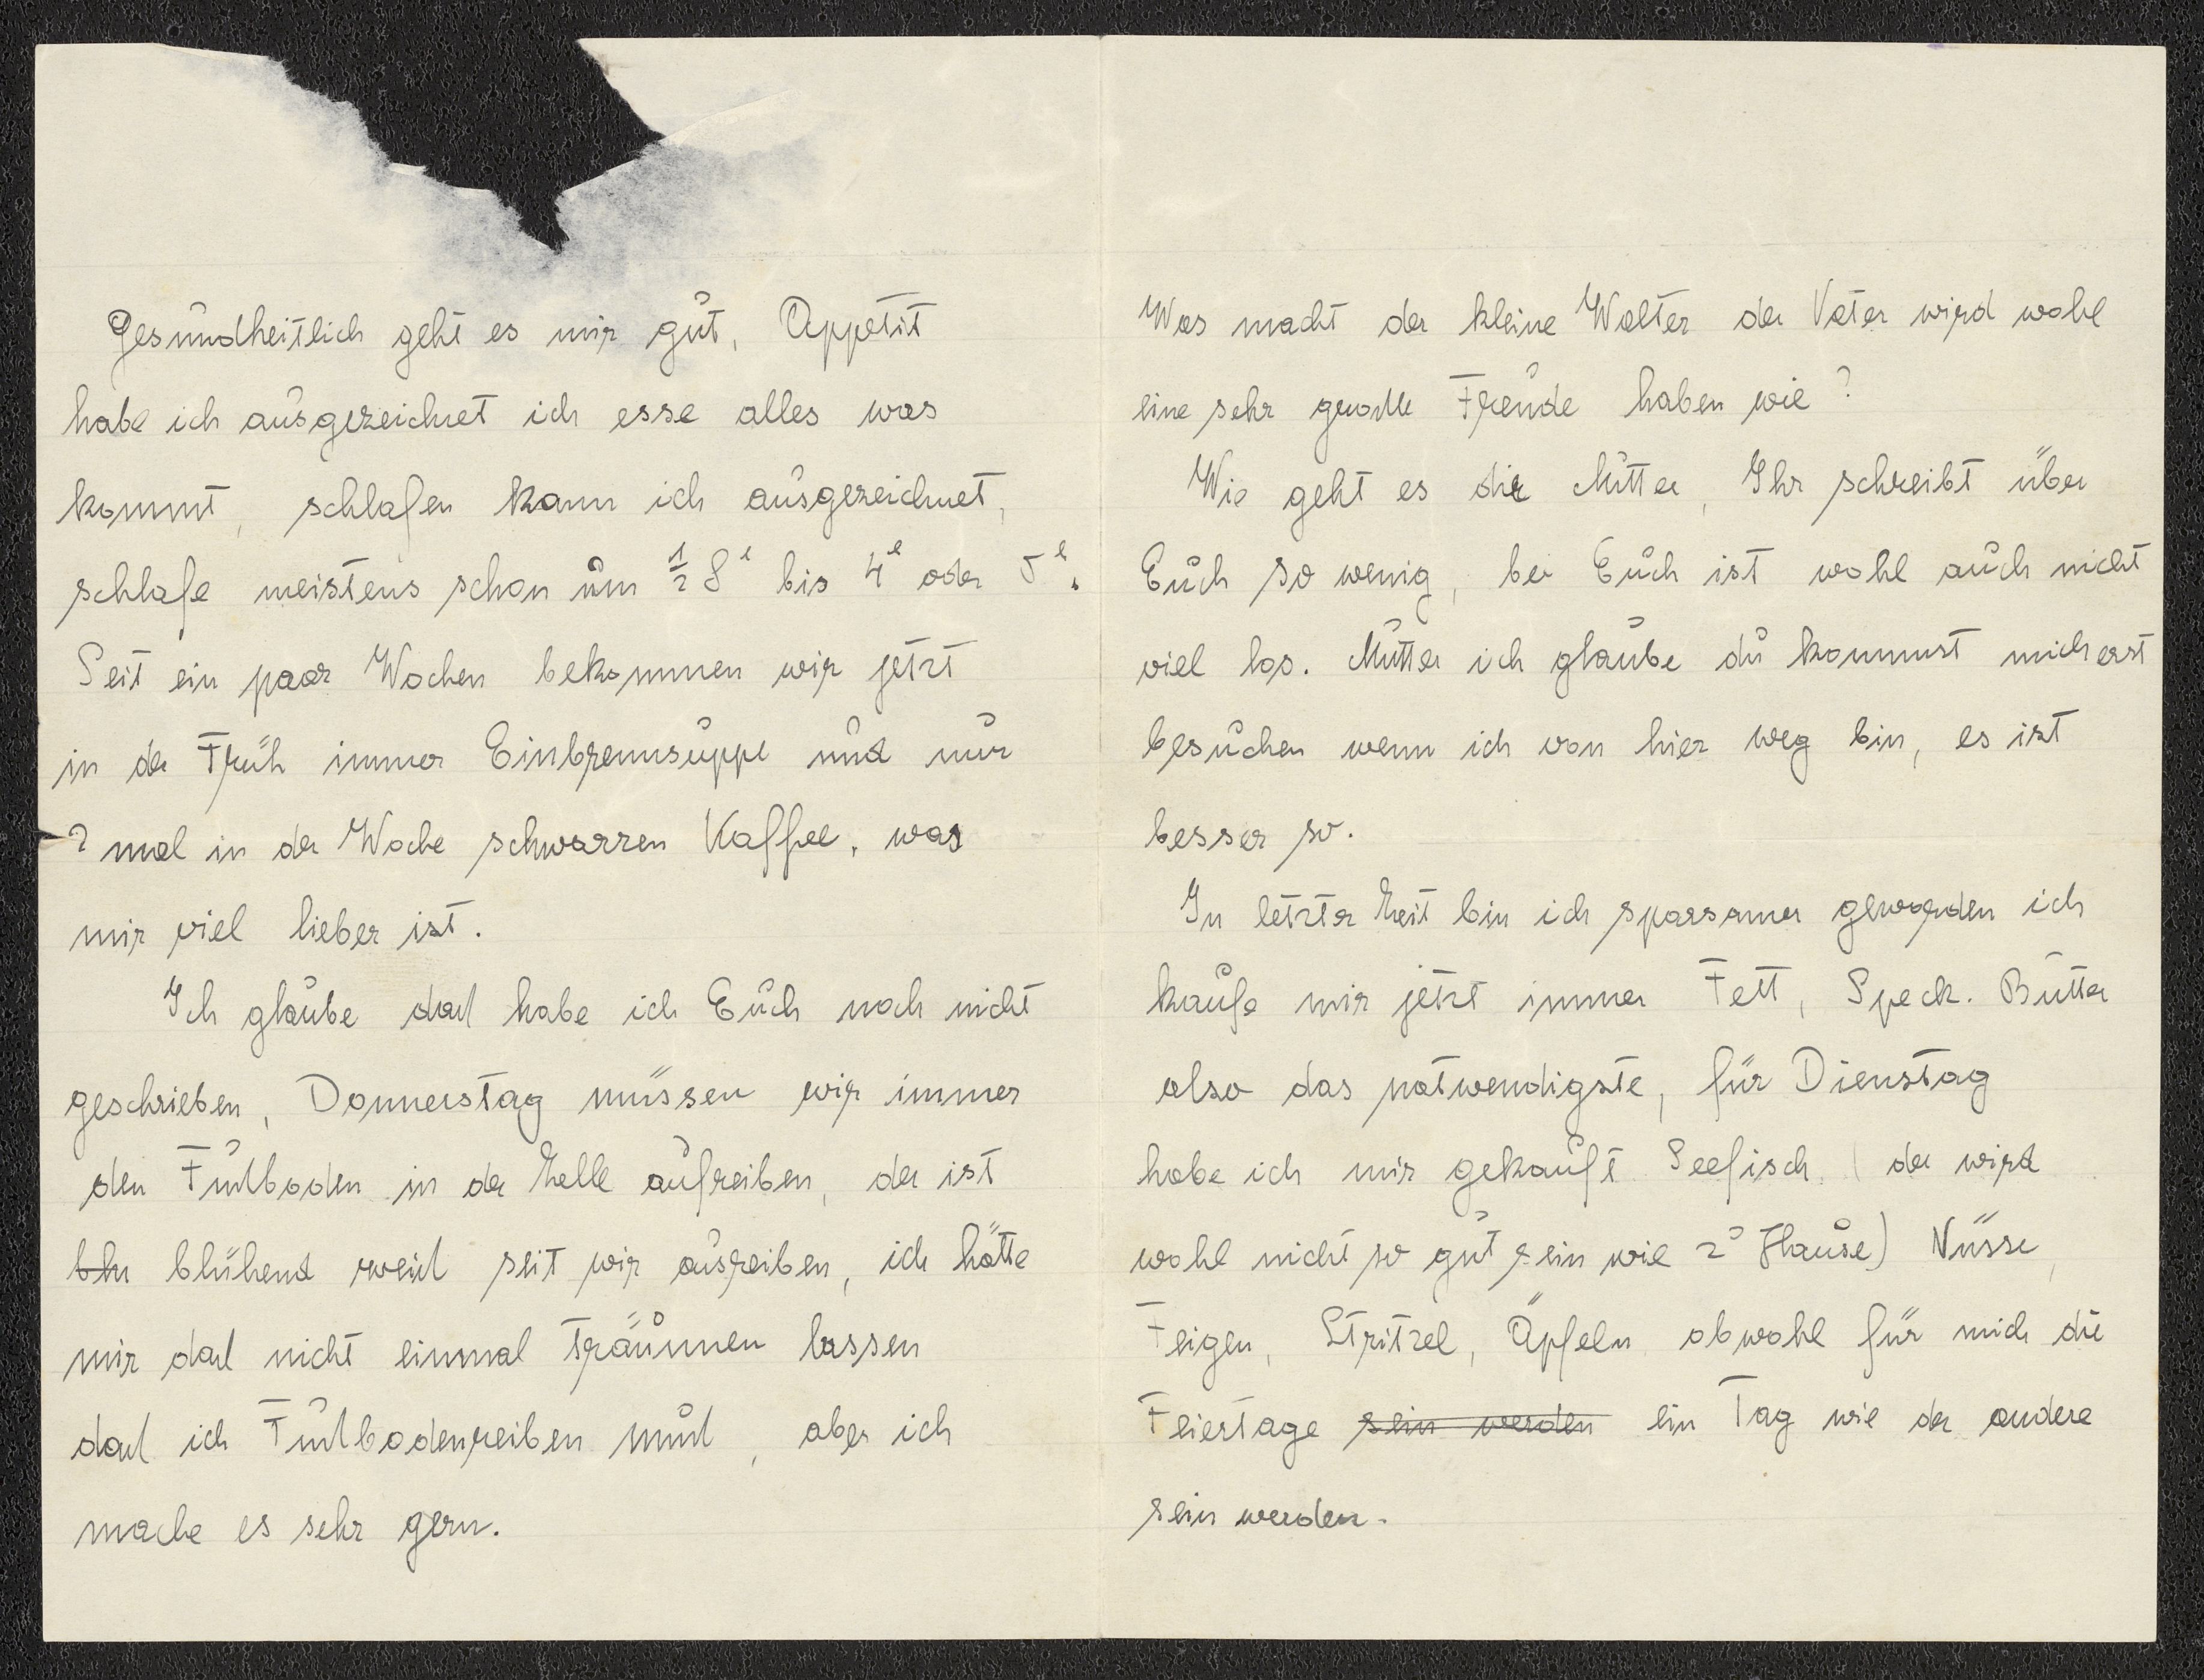 Gesundheitlich geht es mir gut, Appetit
habe ich ausgezeichnet ich esse alles was
kommt, schlafen kann ich ausgezeichnet,
schlafe meistens schon um ½ 8ʰ bis 4ʰ oder 5ʰ.
Seit ein paar Wochen bekommen wir jetzt
in der Früh immer Einbrennsuppe und nur
2 mal in der Woche schwarzen Kaffee, was
mir viel lieber ist.
Ich glaube daß habe ich Euch noch nicht
geschrieben, Donnerstag müssen wir immer
den Fußboden in der Zelle aufreiben, der ist
blu blühend weiß seit wir ausreiben, ich hätte
mir daß nicht einmal träumen lassen
daß ich Fußbodenreiben muß, aber ich
mache es sehr gern.
Was macht der kleine Walter der Vater wird wohl
eine sehr große Freude haben wie?
Wie geht es dir Mutter, Ihr schreibt über
Euch so wenig, bei Euch ist wohl auch nicht
viel los. Mutter ich glaube du kommst mich erst
besuchen wenn ich von hier weg bin, es ist
besser so.
In letzter Zeit bin ich sparsamer geworden ich
kaufe mir jetzt immer Fett, Speck. Butter
also das notwendigste, für Dienstag
habe ich mir gekauft Seefisch, (der wird
wohl nicht so gut sein wie z' Hause) Nüsse,
Feigen, Stritzel, Äpfeln obwohl für mich die
Feiertage sein werden ein Tag wie der andere
sein werden.